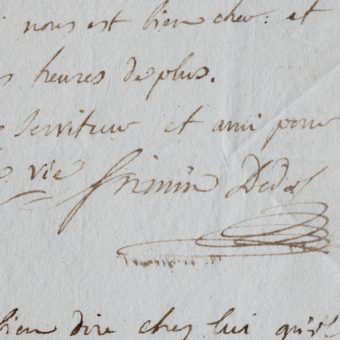 nous est bien cher : et
s heures de plus.
serviteur et ami pour
vie Frimin Dedo
bien dire chez lui qu'il